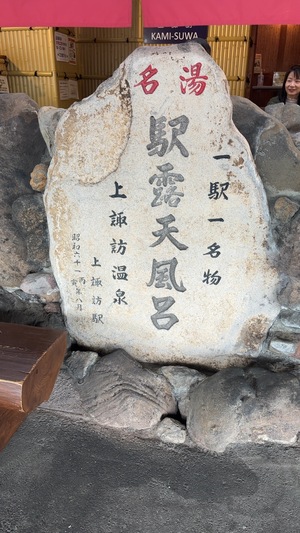 KAMI-SUWA
名湯
一駅一名物
駅露天風呂
上諏訪温泉
上諏訪駅
昭和六十一丙寅年八月